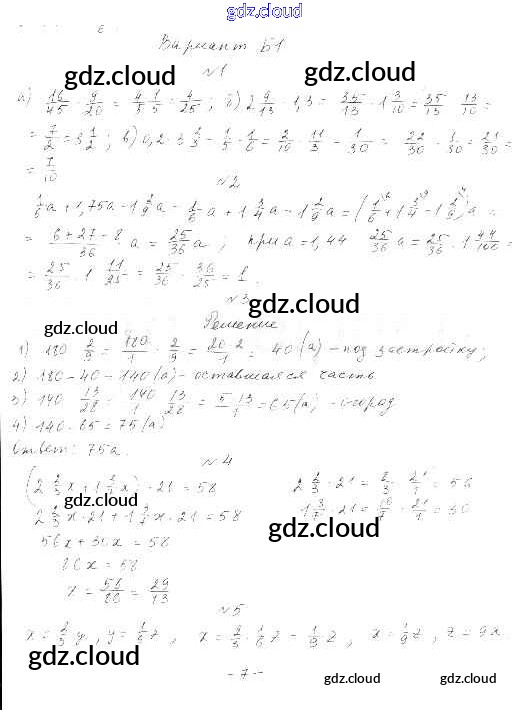 gdz.cloud
Вариант Б1
gdz.cloud gdz.cloud
№1
а) 16/45 · 9/20 = 4/5 · 1/5 = 4/25 ; б) 2 9/13 · 1,3 = 35/13 · 1 3/10 = 35/13 · 13/10 =
= 7/2 = 3 1/2 ; в) 0,2 · 3 2/3 - 1/5 · 1/6 = 2/10 · 11/3 - 1/30 = 22/30 - 1/30 = 21/30 =
= 7/10
№2
1/6 a + 1,75a - 1 2/9 a = 1/6 a + 1 3/4 a - 1 2/9 a = (1/6 + 1 3/4 - 1 2/9) a =
= 6+27-8/36 a = 25/36 a ; при a = 1,44 25/36 a = 25/36 · 1 44/100 =
= 25/36 · 1 11/25 = 25/36 · 36/25 = 1.
№3
gdz.cloud
Решение
gdz.cloud
1) 180 · 2/9 = 180/1 · 2/9 = 20·2/1 = 40 (а) - под застройку;
2) 180 - 40 = 140 (а) - оставшаяся часть
gdz.cloud
3) 140 · 13/28 = 140/1 · 13/28 = 5·13/1 = 65 (а) - огород
4) 140 - 65 = 75 (а)
Ответ: 75а.
№4
(2 2/3 x + 1 3/7 x) · 21 = 58 2 2/3 · 21 = 8/3 · 21/1 = 56
gdz.cloud
2 2/3 x · 21 + 1 3/7 x · 21 = 58 1 3/7 · 21 = 10/7 · 21/1 = 30
gdz.cloud
56x + 30x = 58
86x = 58
x = 58/86 = 29/43
№5
x = 2/3 y, y = 1/6 z, x = 2/3 · 1/6 z = 1/9 z, x = 1/9 z, z = 9x.
gdz.cloud
- 7 -
gdz.cloud gdz.cloud